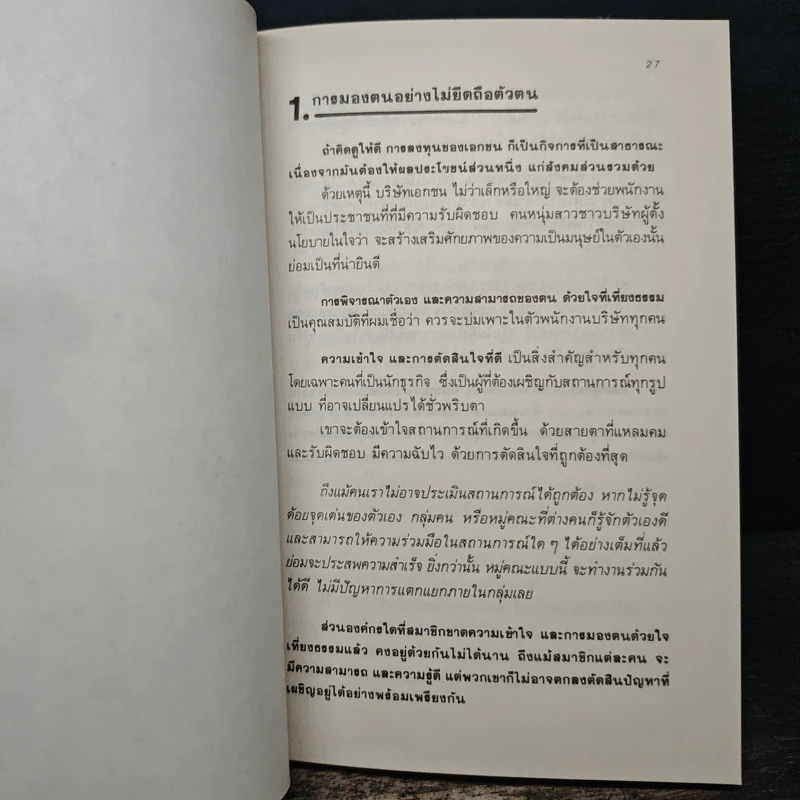 27
1. การมองตนอย่างไม่ยึดถือตัวตน
ถ้าคิดดูให้ดี การลงทุนของเอกชน ก็เป็นกิจการที่เป็นสาธารณะ
เนื่องจากมันต้องให้ผลประโยชน์ส่วนหนึ่ง แก่สังคมส่วนรวมด้วย
ด้วยเหตุนี้ บริษัทเอกชน ไม่ว่าเล็กหรือใหญ่ จะต้องช่วยพนักงาน
ให้เป็นประชาชนที่ที่มีความรับผิดชอบ คนหนุ่มสาวชาวบริษัทผู้ตั้ง
นโยบายในใจว่า จะสร้างเสริมศักยภาพของความเป็นมนุษย์ในตัวเองนั้น
ย่อมเป็นที่น่ายินดี
การพิจารณาตัวเอง และความสามารถของตน ด้วยใจที่เที่ยงธรรม
เป็นคุณสมบัติที่ผมเชื่อว่า ควรจะบ่มเพาะในตัวพนักงานบริษัททุกคน
ความเข้าใจ และการตัดสินใจที่ดี เป็นสิ่งสำคัญสำหรับทุกคน
โดยเฉพาะคนที่เป็นนักธุรกิจ ซึ่งเป็นผู้ที่ต้องเผชิญกับสถานการณ์ทุกรูป
แบบ ที่อาจเปลี่ยนแปรได้ชั่วพริบตา
เขาจะต้องเข้าใจสถานการณ์ที่เกิดขึ้น ด้วยสายตาที่แหลมคม
และรับผิดชอบ มีความฉับไว ด้วยการตัดสินใจที่ถูกต้องที่สุด
ถึงแม้คนเราไม่อาจประเมินสถานการณ์ได้ถูกต้อง หากไม่รู้จุด
ด้อยจุดเด่นของตัวเอง กลุ่มคน หรือหมู่คณะที่ต่างคนก็รู้จักตัวเองดี
และสามารถให้ความร่วมมือในสถานการณ์ใด ๆ ได้อย่างเต็มที่แล้ว
ย่อมจะประสพความสำเร็จ ยิ่งกว่านั้น หมู่คณะแบบนี้ จะทำงานร่วมกัน
ได้ดี ไม่มีปัญหาการแตกแยกภายในกลุ่มเลย
ส่วนองค์กรใดที่สมาชิกขาดความเข้าใจ และการมองตนด้วยใจ
เที่ยงธรรมแล้ว คงอยู่ด้วยกันไม่ได้นาน ถึงแม้สมาชิกแต่ละคน จะ
มีความสามารถ และความรู้ดี แต่พวกเขาก็ไม่อาจตกลงตัดสินปัญหาที่
เผชิญอยู่ได้อย่างพร้อมเพรียงกัน